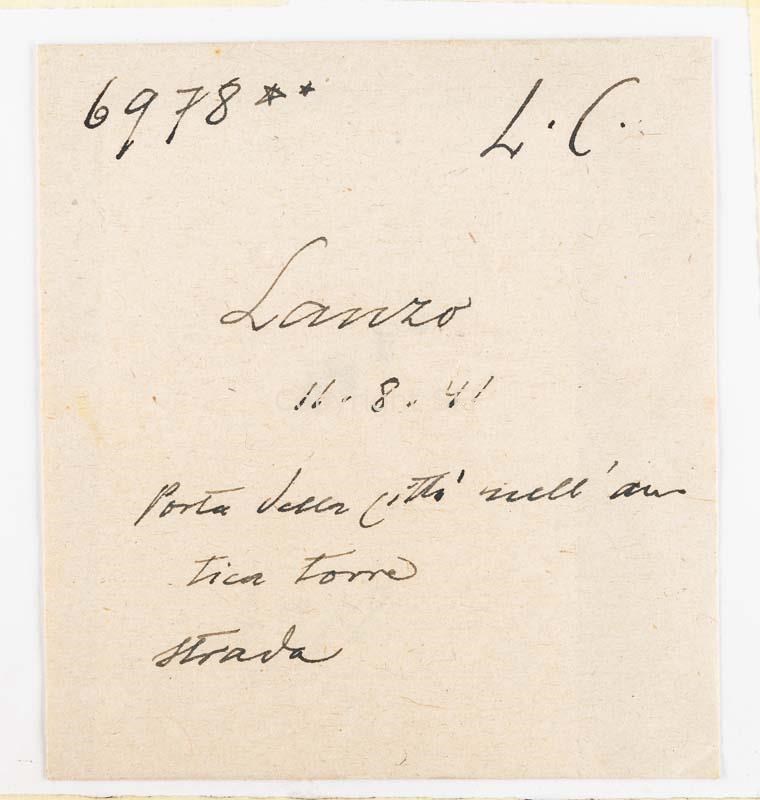 6978** L. C.
Lanzo
11. 8. 41
Porta della città nell'an
tica torre
strada